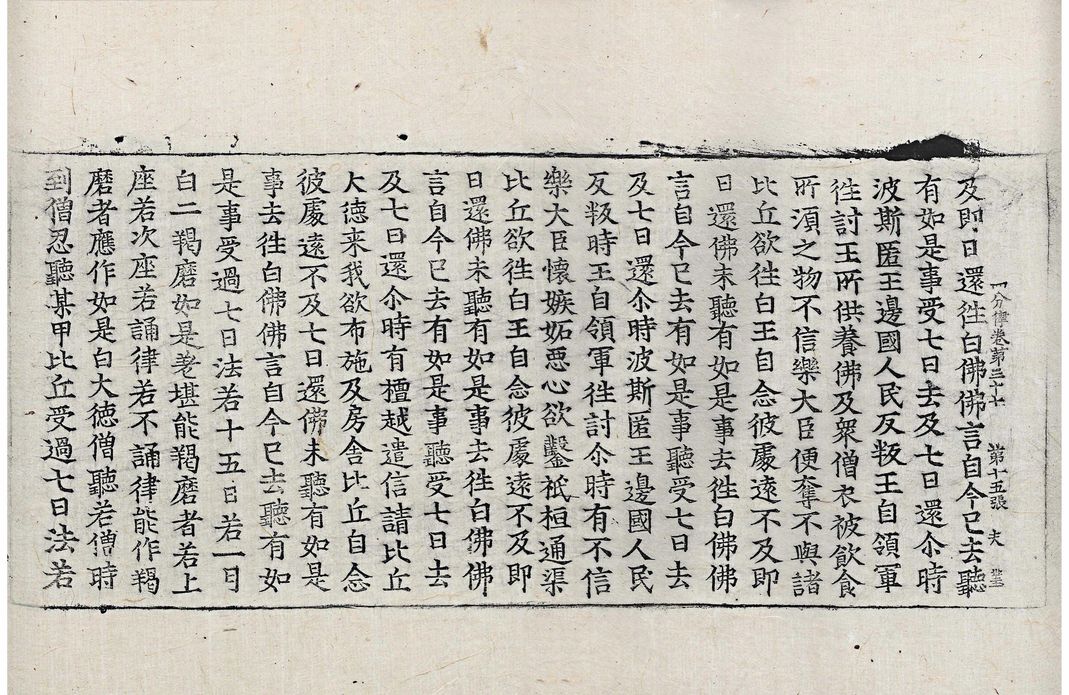 分律卷第三十七 第十五張 夫
及即日還徃白佛佛言自今已去聽
有如是事受七日去及七日還尒時
波斯匿王邊國人民反叛王自領軍
徃討王所供養佛及衆僧衣被飲食
所須之物不信樂大臣便奪不與諸
比丘欲徃白王自念彼處遠不及即
日還佛未聽有如是事去徃白佛佛
言自今已去有如是事聽受七日去
及七日還尒時波斯匿王邊國人民
反叛時王自領軍徃討尒時有不信
樂大臣懷嫉妬惡心欲鑿祇桓通渠
比丘欲徃白王自念彼處遠不及即
日還佛未聽有如是事去徃白佛佛
言自今已去有如是事聽受七日去
及七日還尒時有檀越遣信請比丘
大德來我欲布施及房舍比丘自念
彼處遠不及七日還佛未聽有如是
事去徃白佛佛言自今已去聽有如
是事受過七日法若十五日若一月
白二羯磨如是差堪能羯磨者若上
座若次座若誦律若不誦律能作羯
磨者應作如是白大德僧聽若僧時
到僧忍聽某甲比丘受過七日法若